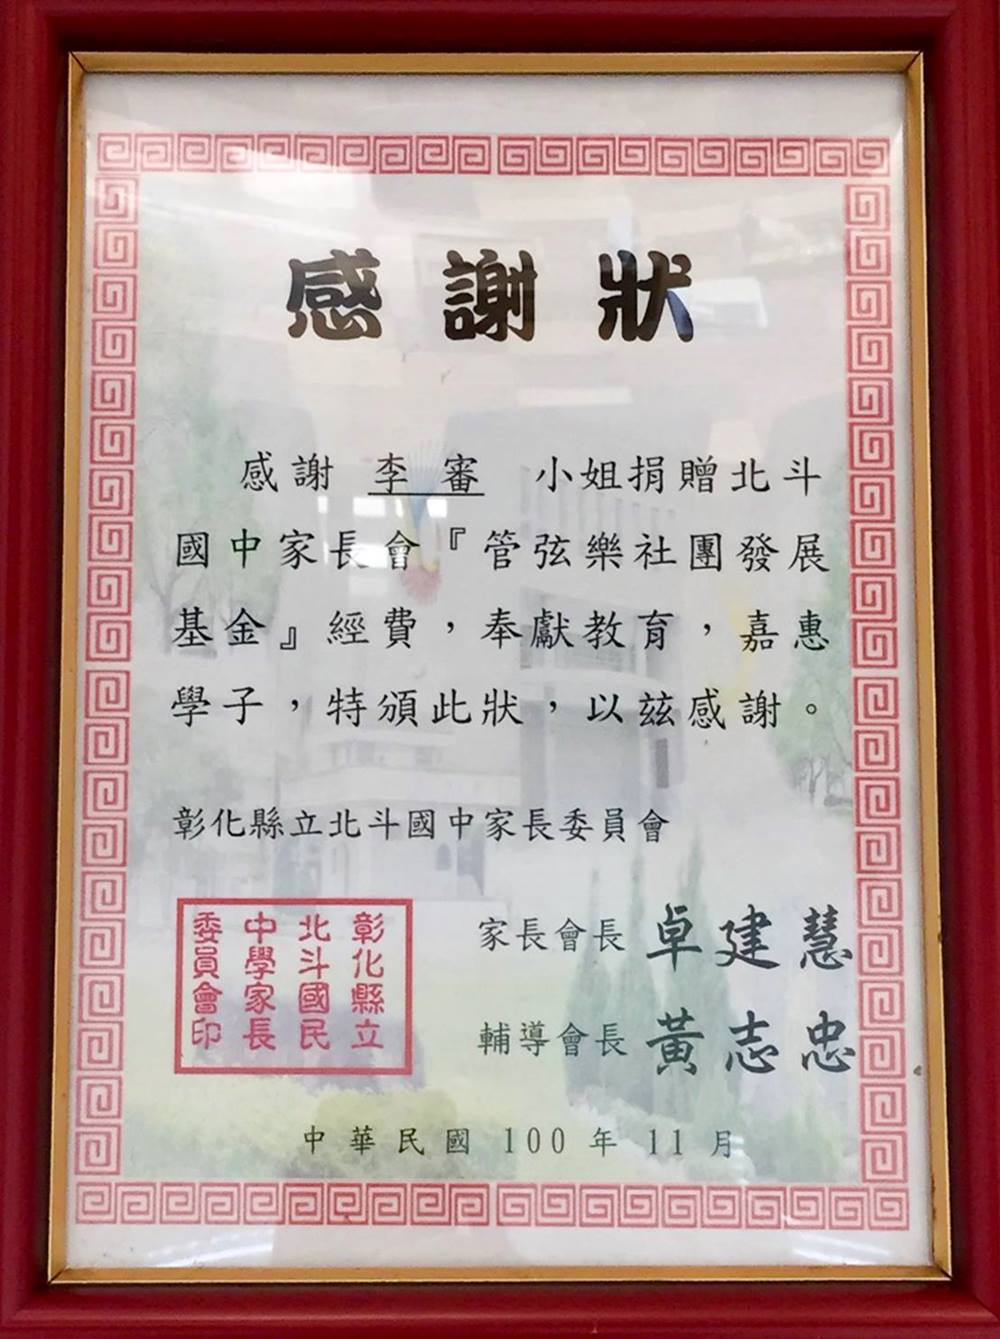 感謝狀
感謝 李審 小姐捐贈北斗
國中家長會『管弦樂社團發展
基金』經費，奉獻教育，嘉惠
學子，特頒此狀，以茲感謝。
彰化縣立北斗國中家長委員會
彰化縣立
北斗國民
中學家長
委員會印
家長會長 卓建慧
輔導會長 黃志忠
中華民國 100 年 11 月